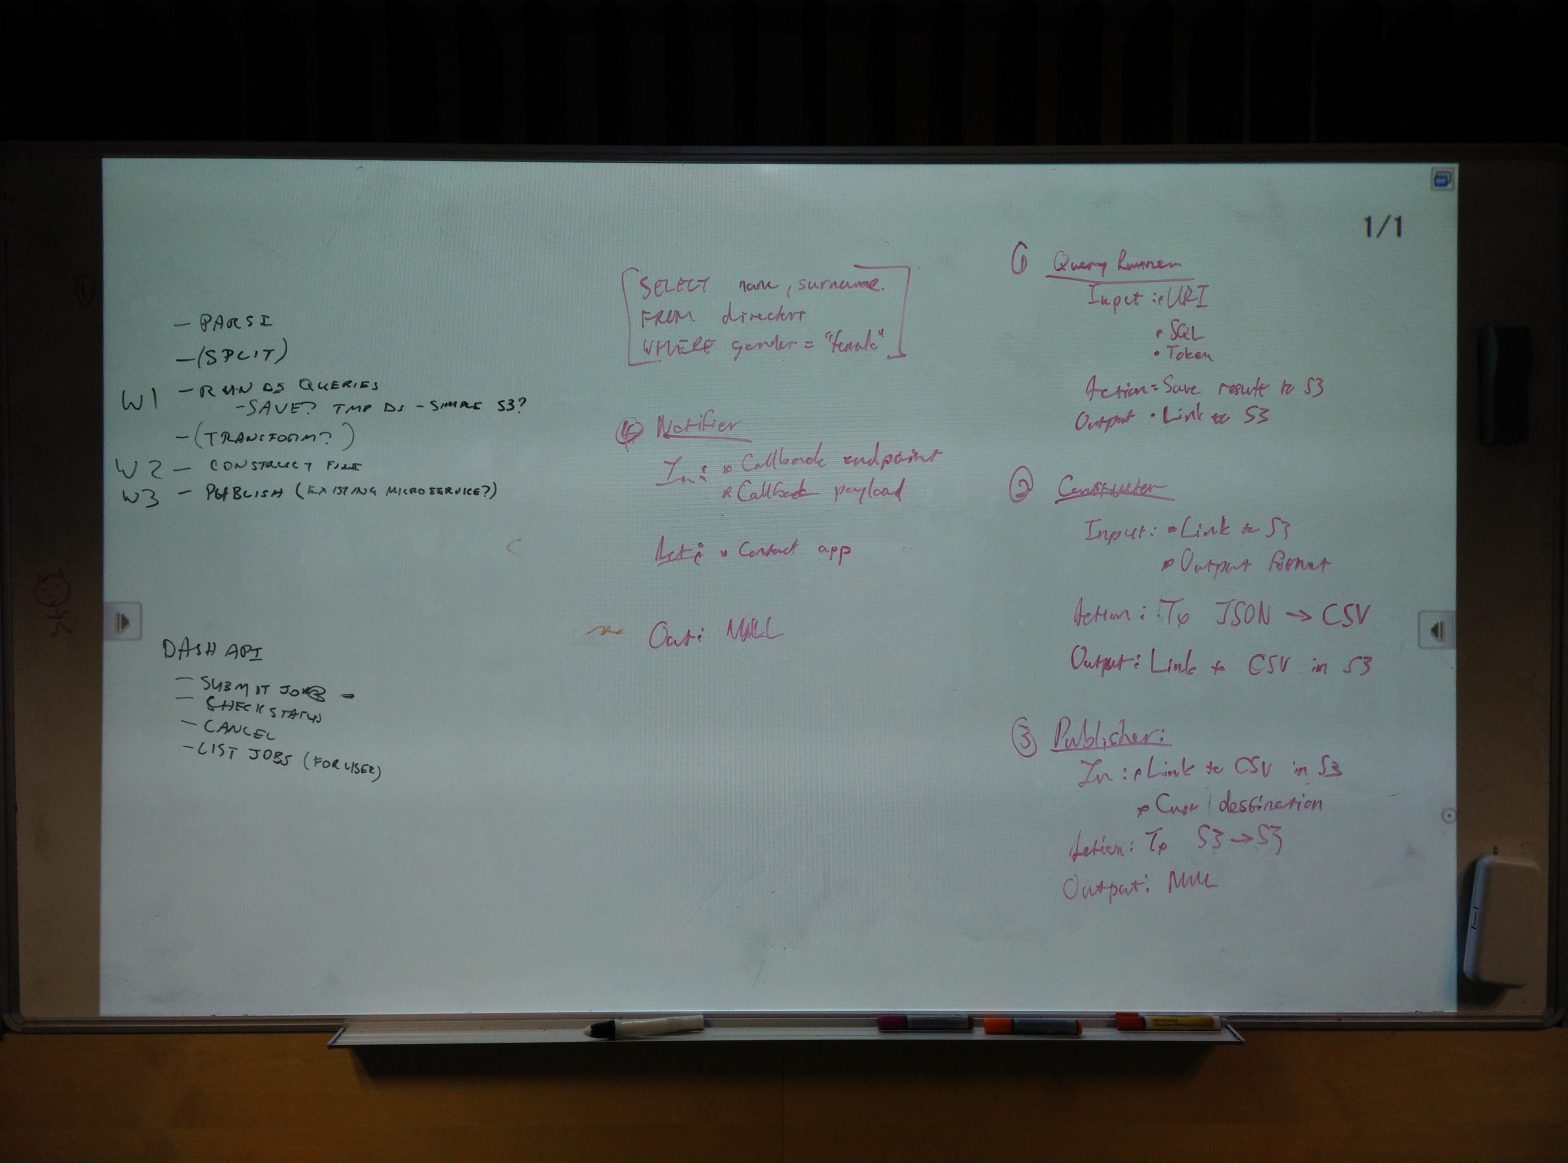 - PARSE
- (SPLIT)
W1 - RUN DS QUERIES
- SAVE? TMP DS - SIMPLE S3?
- (TRANSFORM?)
W2 - CONSTRUCT FILE
W3 - PUBLISH (EXISTING MICROSERVICE?)
DASH API
- SUBMIT JOB -
- CHECK STATUS
- CANCEL
- LIST JOBS (FOR USER)
SELECT name, surname.
FROM directory
WHERE gender = "female"
④ Notifier
In: • Callback endpoint
• Callback payload
Act: • Contact app
Out: NULL
1/1
① Query Runner
Input: • URI
• SQL
• Token
Action: Save result to S3
Output • Link to S3
② Constructor
Input: • Link to S3
• Output Format
Action: Tx JSON → CSV
Output: Link to CSV in S3
③ Publisher:
In: • Link to CSV in S3
• Cust destination
Action: Tx S3 → S3
Output: NULL